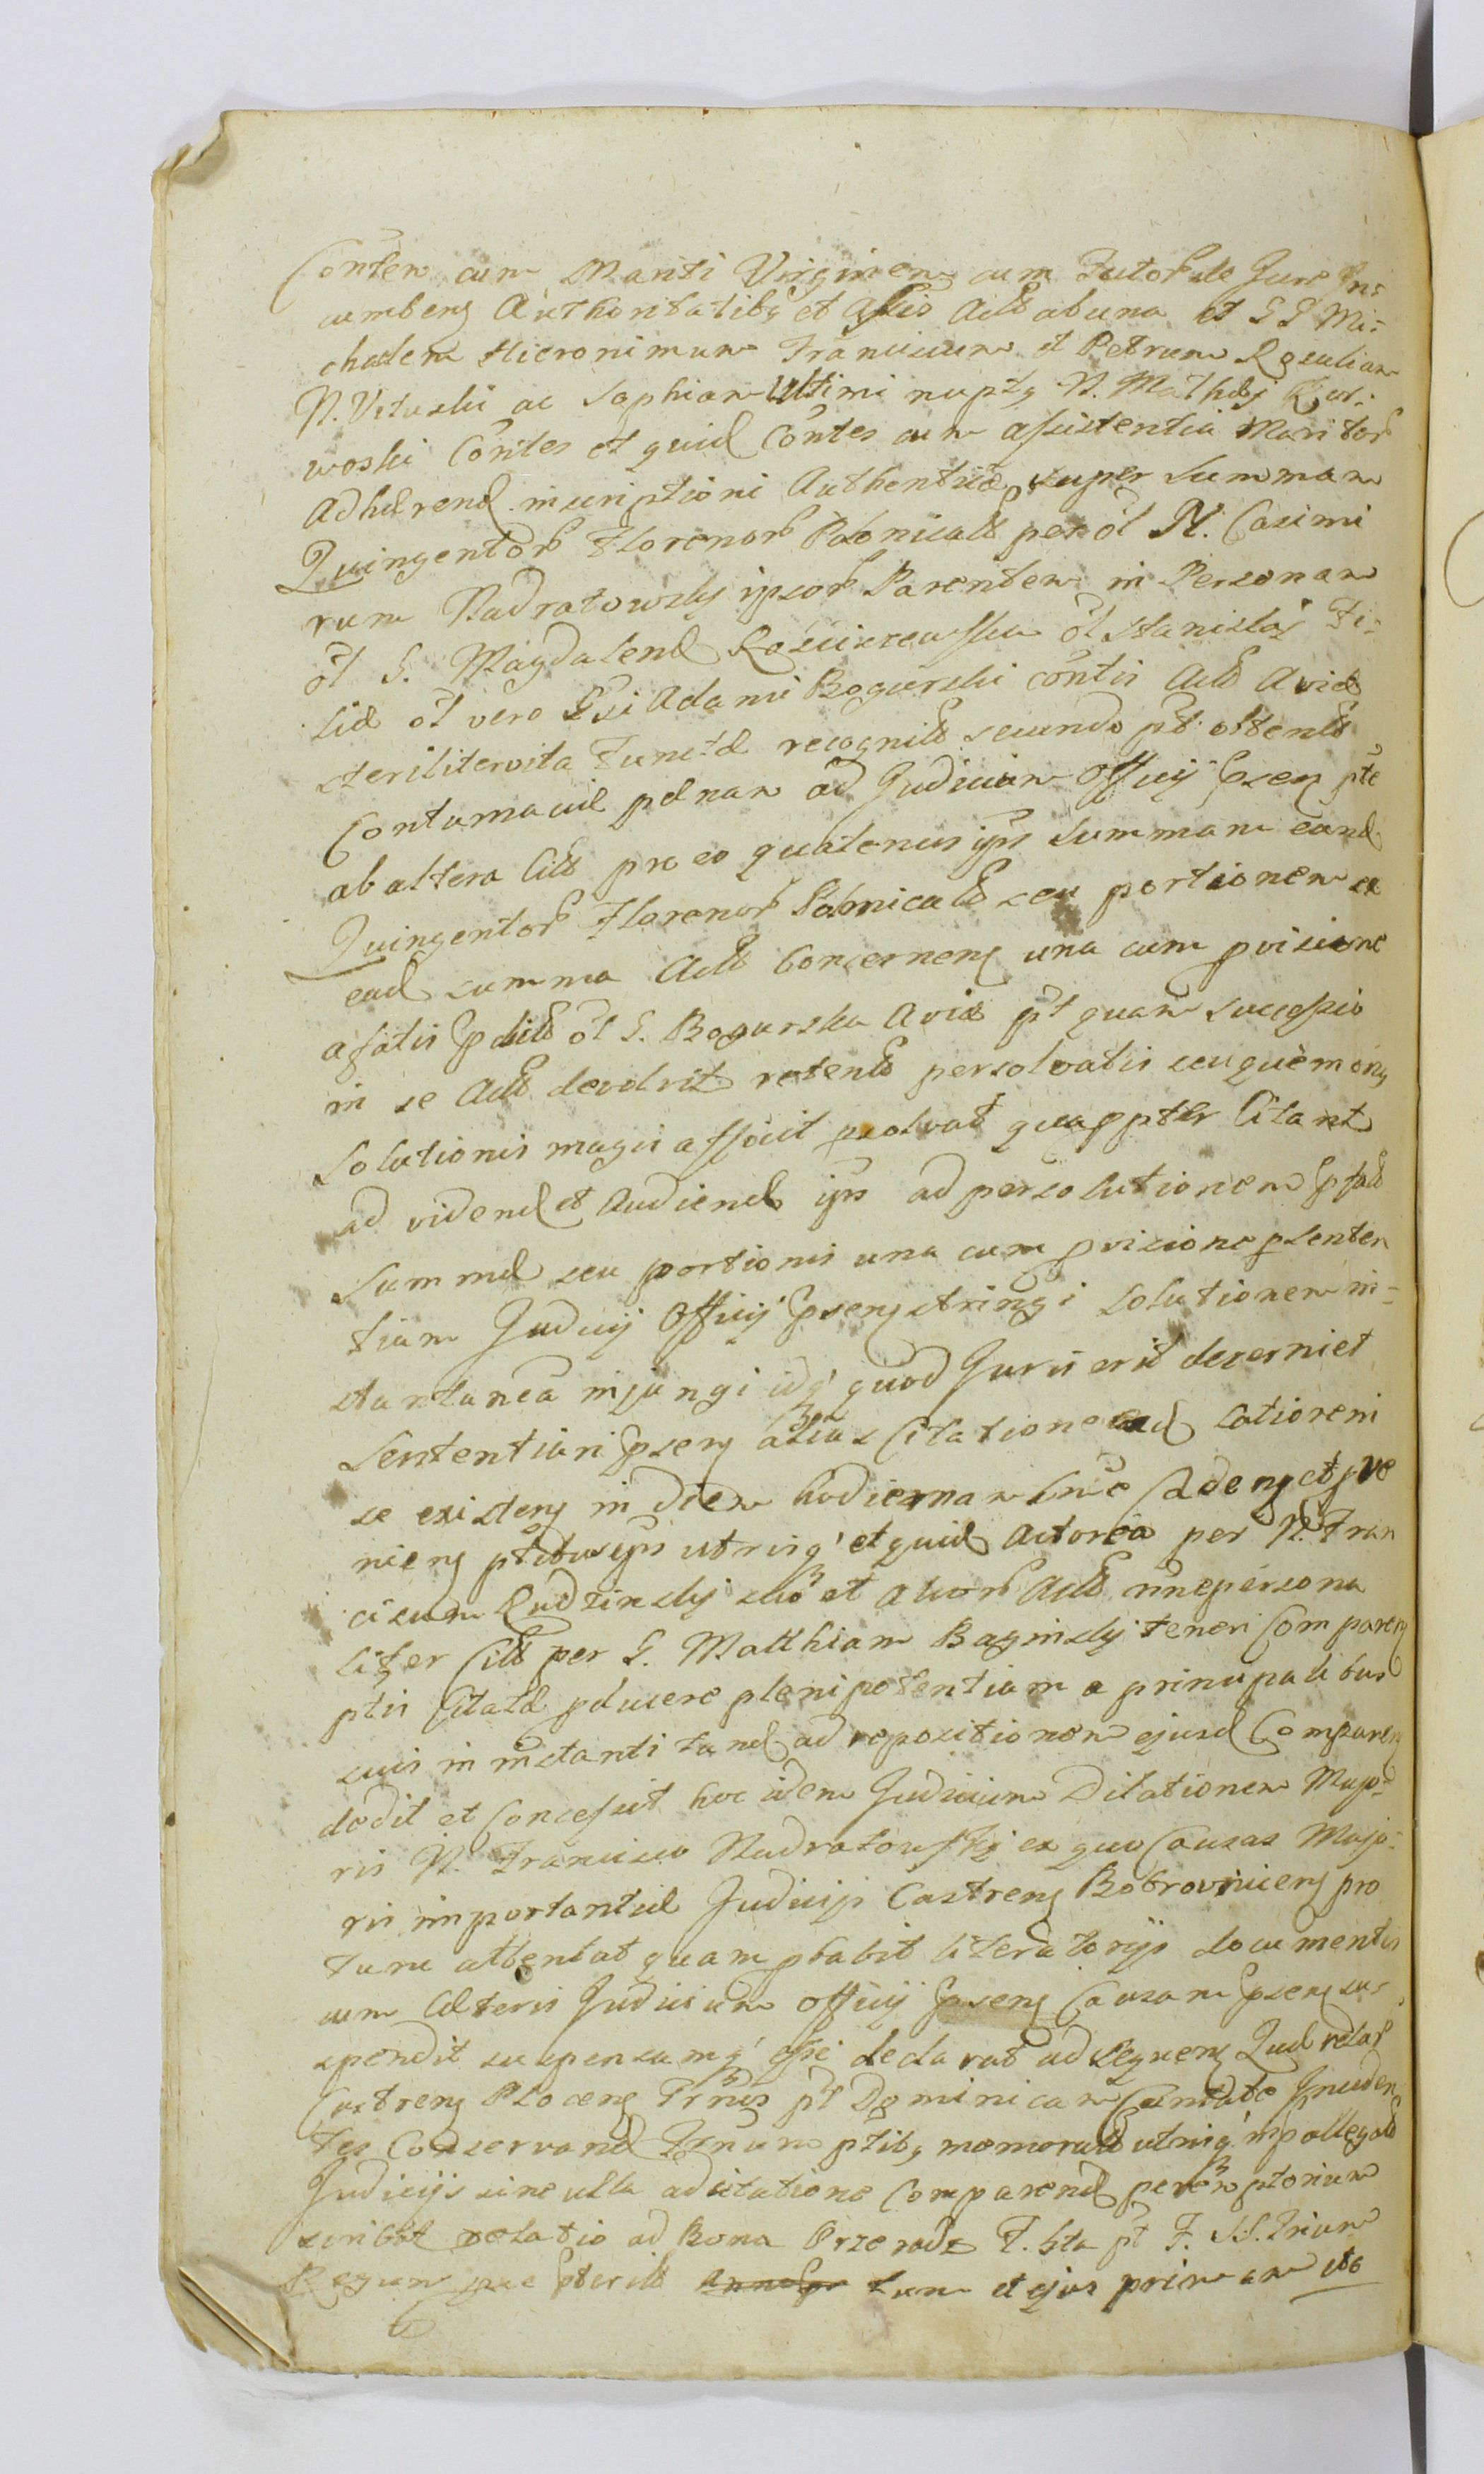 Conten cum Mariti Virginem cum Tutor de Jure In-
cumbens Authoritatibq et Assio Actt ab una et GG Mi-
chalem Hieronimum Franciscum et Petrum Rosalian
N. Vituski ac Sophiam Ultimi nuptq N. Mathej
woski Contes et quid Contes cum assistentia Maritor
Adhærend inscriptioni Authenticæ super Summam
Quingentor Florenor Polonicalt per ol N. Casimi
rum Nadratowsky ipsor Parentem in Personam
ol G. Magdalenæ ol Stanislaj Fi-
liæ ol vero Gsi Adami Bogurski contis Actt Aviæ
steriliter vita Functæ recognitt secundo pt obtentt
Contumaciæ pænam ad Judicium Officij Gpsens pte
ab altera Citt pro eo quatenus ips Summam eand
Quingentor Florenor Polonicalt seu portionem ex
ead summa Actt Concernens una cum pvisione
a fatis Gpditt ol G. Bogurska Aviæ pt quam Successio
in se Actt devolvit retentt persolvatis seu quem onq
Solutionis magis afficit psolvat quappter Citant
ad vidend et Audiend ips ad persolutionem Gpfatt
Summæ seu portionis una cum pvisione p Senten
tiam Judicij Officij Gpsens stringi Solutionem in-
stantanea injungi idq quod Juris erit decerniet
Sententiam Gpsens alias Citatione ead latioreni
se existens in diem hodiernam Cadens et pve
niens ptibus ips utrisq et quid Actorea per N. Fran
ciscum Rudzinsky suo et alior Actt nne persona
liter Citt per G. Matthiam Baginsky teneri Comparens
ptis Citatæ pducere plenipotentiam a principalibus
suis in instanti tand ad repositionem ejusd Comparens
dedit et Concessit hoc idem Judicium Dilationem Majo-
ris N. Francisco Nadratowskj ex quo Causas Majo-
ris importantiæ Judicijs Castrens Bobrovnicens pro
tunc attentat quam pbabit literatorijs documentis
cum Cæteris Judicium Officij Gpsens Causam Gpsens su-
spendit suspensamq esse declarat ad Sequens Qud relar
Castrens Plocens Trnis pt Dominicam Cantate Inciden
tes Conservand Trnum ptibq memoratt utrisq in pallegatt
Judicijs sine ulla adcitatione Comparend peremptorium
scribit relatio ad Bona Przeradz F. 6ta pt F. SS. Trium
Regum pteritt tum et ejus primam ito